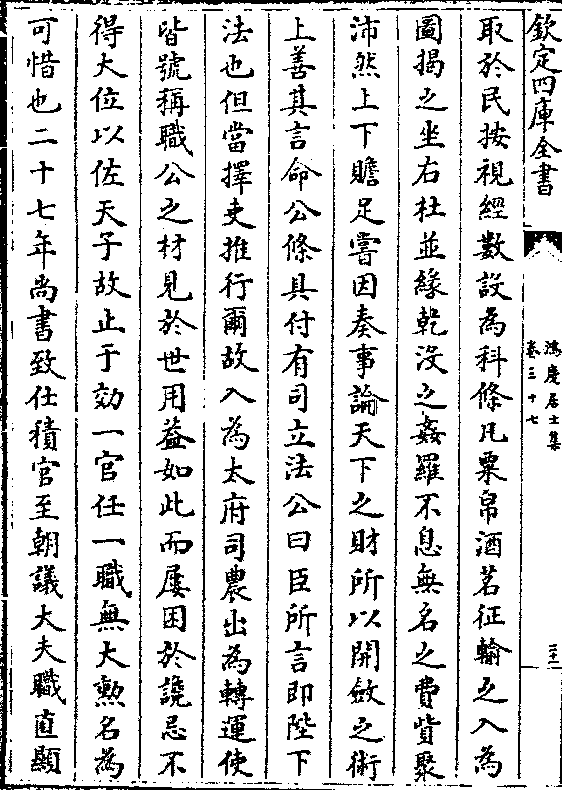 欽定四庫全書
鴻慶居士集
卷三十七
取於民按視經數設為科條凡粟帛酒茗征輸之入為
圖揭之坐右杜並緣乾沒之姦羅不息無名之費貲聚
沛然上下贍足嘗因奏事論天下之財所以開斂之術
上善其言命公條具付有司立法公曰臣所言即陛下
法也但當擇吏推行爾故入為太府司農出為轉運使
皆號稱職公之材見於世用葢如此而屢困於讒忌不
得大位以佐天子故止于効一官任一職無大勲名為
可惜也二十七年尚書致仕積官至朝議大夫職直顯